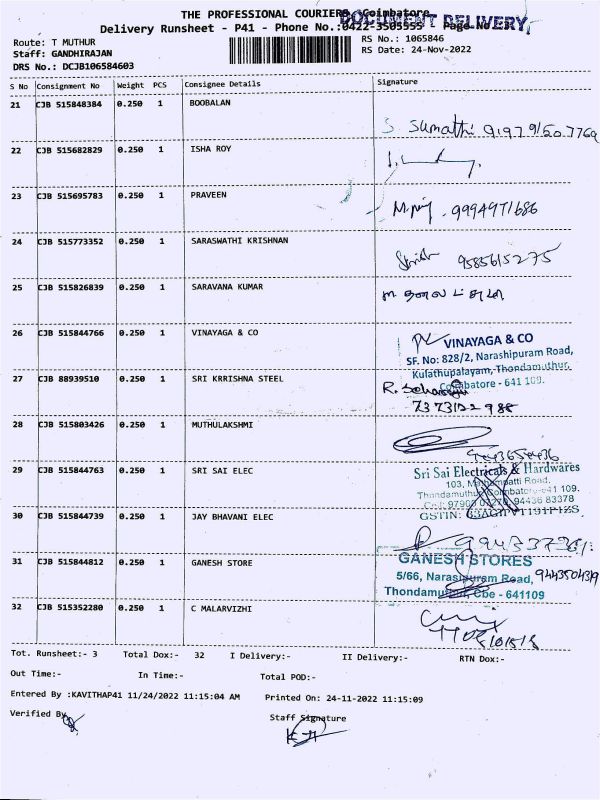 THE PROFESSIONAL COURIERS, Coimbatore
DOCUMENT DELIVERY
Delivery Runsheet - P41 - Phone No.:0422-3505555 - Page No.:3
Route: T MUTHUR
RS No.: 1065846
Staff: GANDHIRAJAN
RS Date: 24-Nov-2022
DRS No.: DCJB106584603
S No Consignment No Weight PCS Consignee Details Signature
21 CJB 515848384 0.250 1 BOOBALAN
S Sumathi
22 CJB 515682829 0.250 1 ISHA ROY
23 CJB 515695783 0.250 1 PRAVEEN
9994971686
24 CJB 515773352 0.250 1 SARASWATHI KRISHNAN
9585615275
25 CJB 515826839 0.250 1 SARAVANA KUMAR
26 CJB 515844766 0.250 1 VINAYAGA & CO
VINAYAGA & CO
SF. No: 828/2, Narashipuram Road,
Kulathupalayam, Thondamuthur,
Coimbatore - 641 109.
27 CJB 88939510 0.250 1 SRI KRRISHNA STEEL
7373122988
28 CJB 515803426 0.250 1 MUTHULAKSHMI
29 CJB 515844763 0.250 1 SRI SAI ELEC
Sri Sai Electricals & Hardwares
103, Road,
Thondamuthur, Coimbatore-641 109.
94436 83378
GSTIN:
30 CJB 515844739 0.250 1 JAY BHAVANI ELEC
31 CJB 515844812 0.250 1 GANESH STORE
GANESH STORES
5/66, Narasipuram Road,
Thondamuthur, Cbe - 641109
32 CJB 515352280 0.250 1 C MALARVIZHI
Tot. Runsheet:- 3 Total Dox:- 32 I Delivery:- II Delivery:- RTN Dox:-
Out Time:- In Time:- Total POD:-
Entered By :KAVITHAP41 11/24/2022 11:15:04 AM Printed On: 24-11-2022 11:15:09
Verified By
Staff Signature